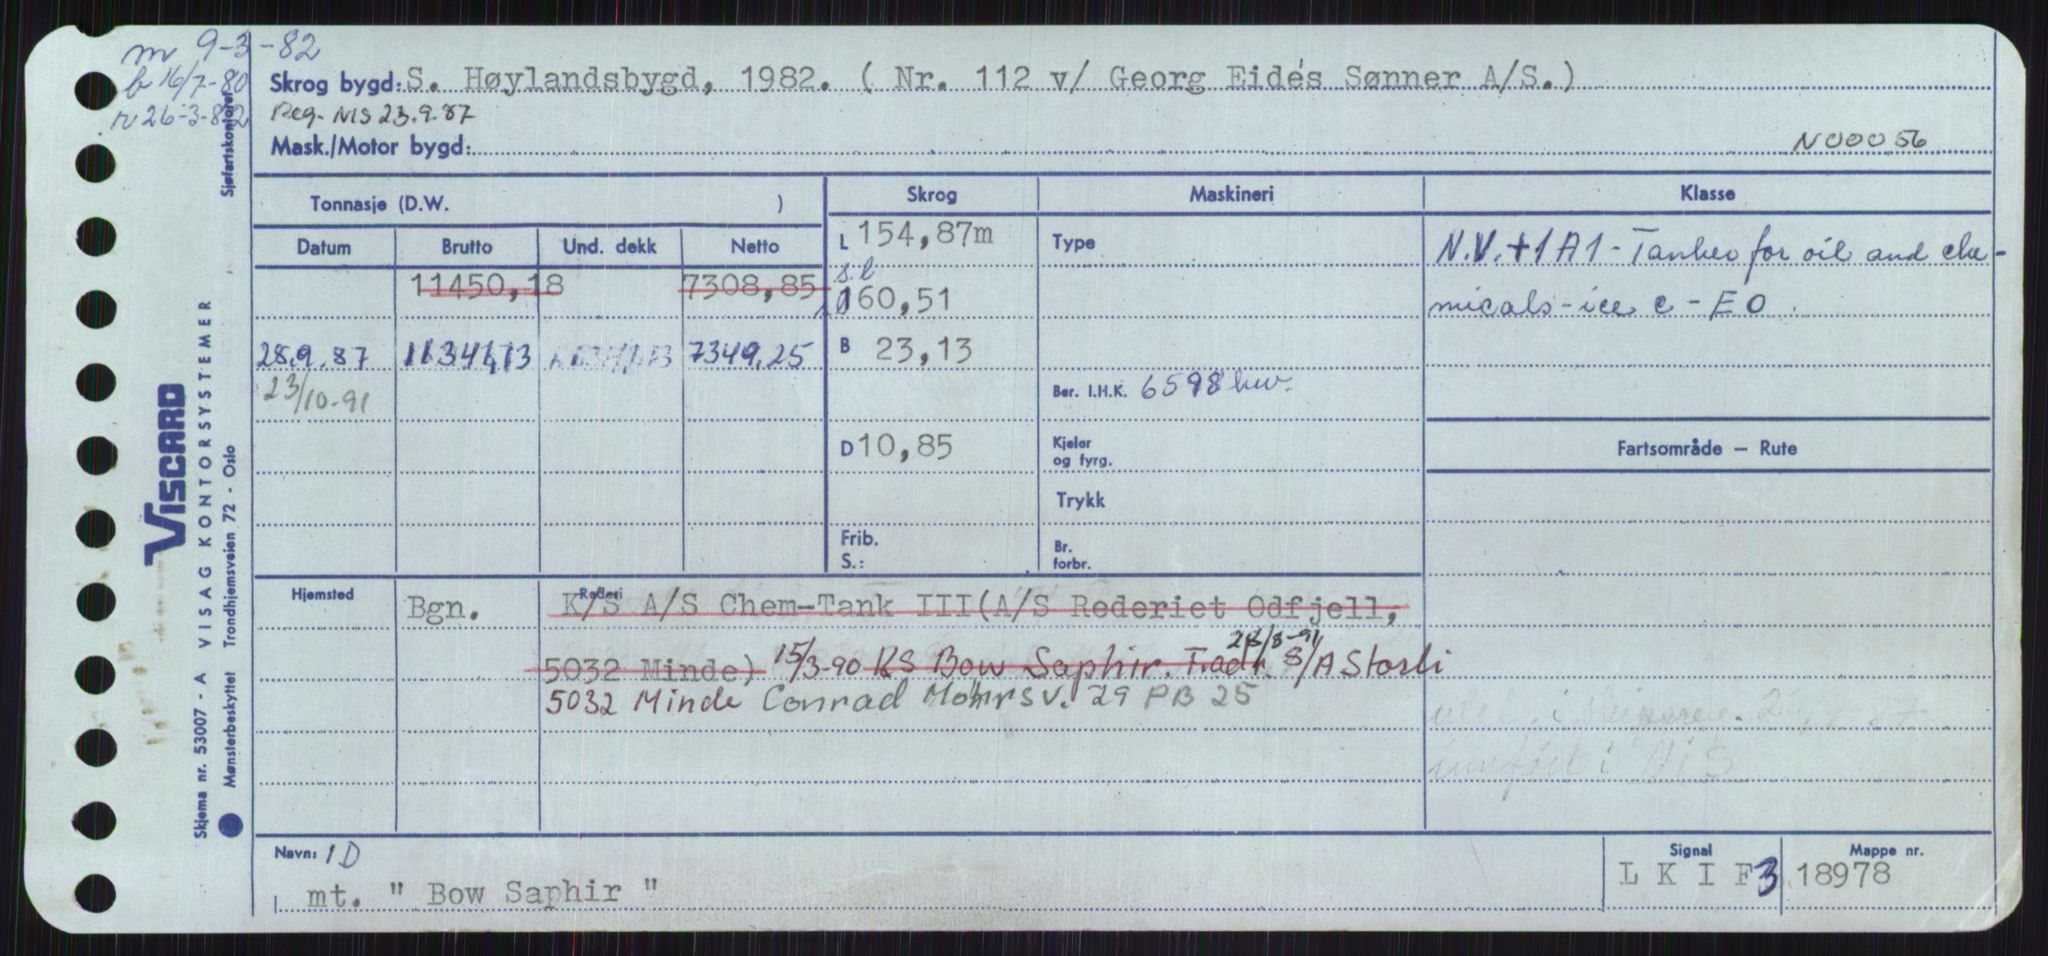 m 9-3-82
b 16/7-80
r 26-3-82
Skrog bygd: S. Høylandsbygd, 1982. ( Nr. 112 v/ Georg Eides Sønner A/S.)
Reg. NIS 23.9.87
Mask./Motor bygd:
N00056
Sjøfartskontoret
Tonnasje (D.W. )
Skrog
Maskineri
Klasse
Datum
Brutto
Und. dekk
Netto
11450,18
7308,85
28.9.87
7349,25
23/10-91
L 154,87m
s.l
160,51
B 23,13
D 10,85
Frib.
S.:
Type
Ber. I.H.K. 6598 kw.
Kjeler
og fyrg.
Trykk
Br.
forbr.
N.V. +1A1 - Tanker for oil and che-
micals - ice c - EO.
Fartsområde — Rute
Hjemsted
Bgn.
Rederi
K/S A/S Chem-Tank III(A/S Rederiet Odfjell,
5032 Minde) 15/3-90 KS Bow Saphir. /8-91 S/A Storli
5032 Minde Conrad Mohrs v. 29 PB 25
innført i NIS
Navn: 1D
mt. " Bow Saphir "
Signal
L K I F 3
Mappe nr.
18978
VISCARD
Skjema nr. 53007 - A VISAG KONTORSYSTEMER
Mønsterbeskyttet Trondhjemsveien 72 - Oslo